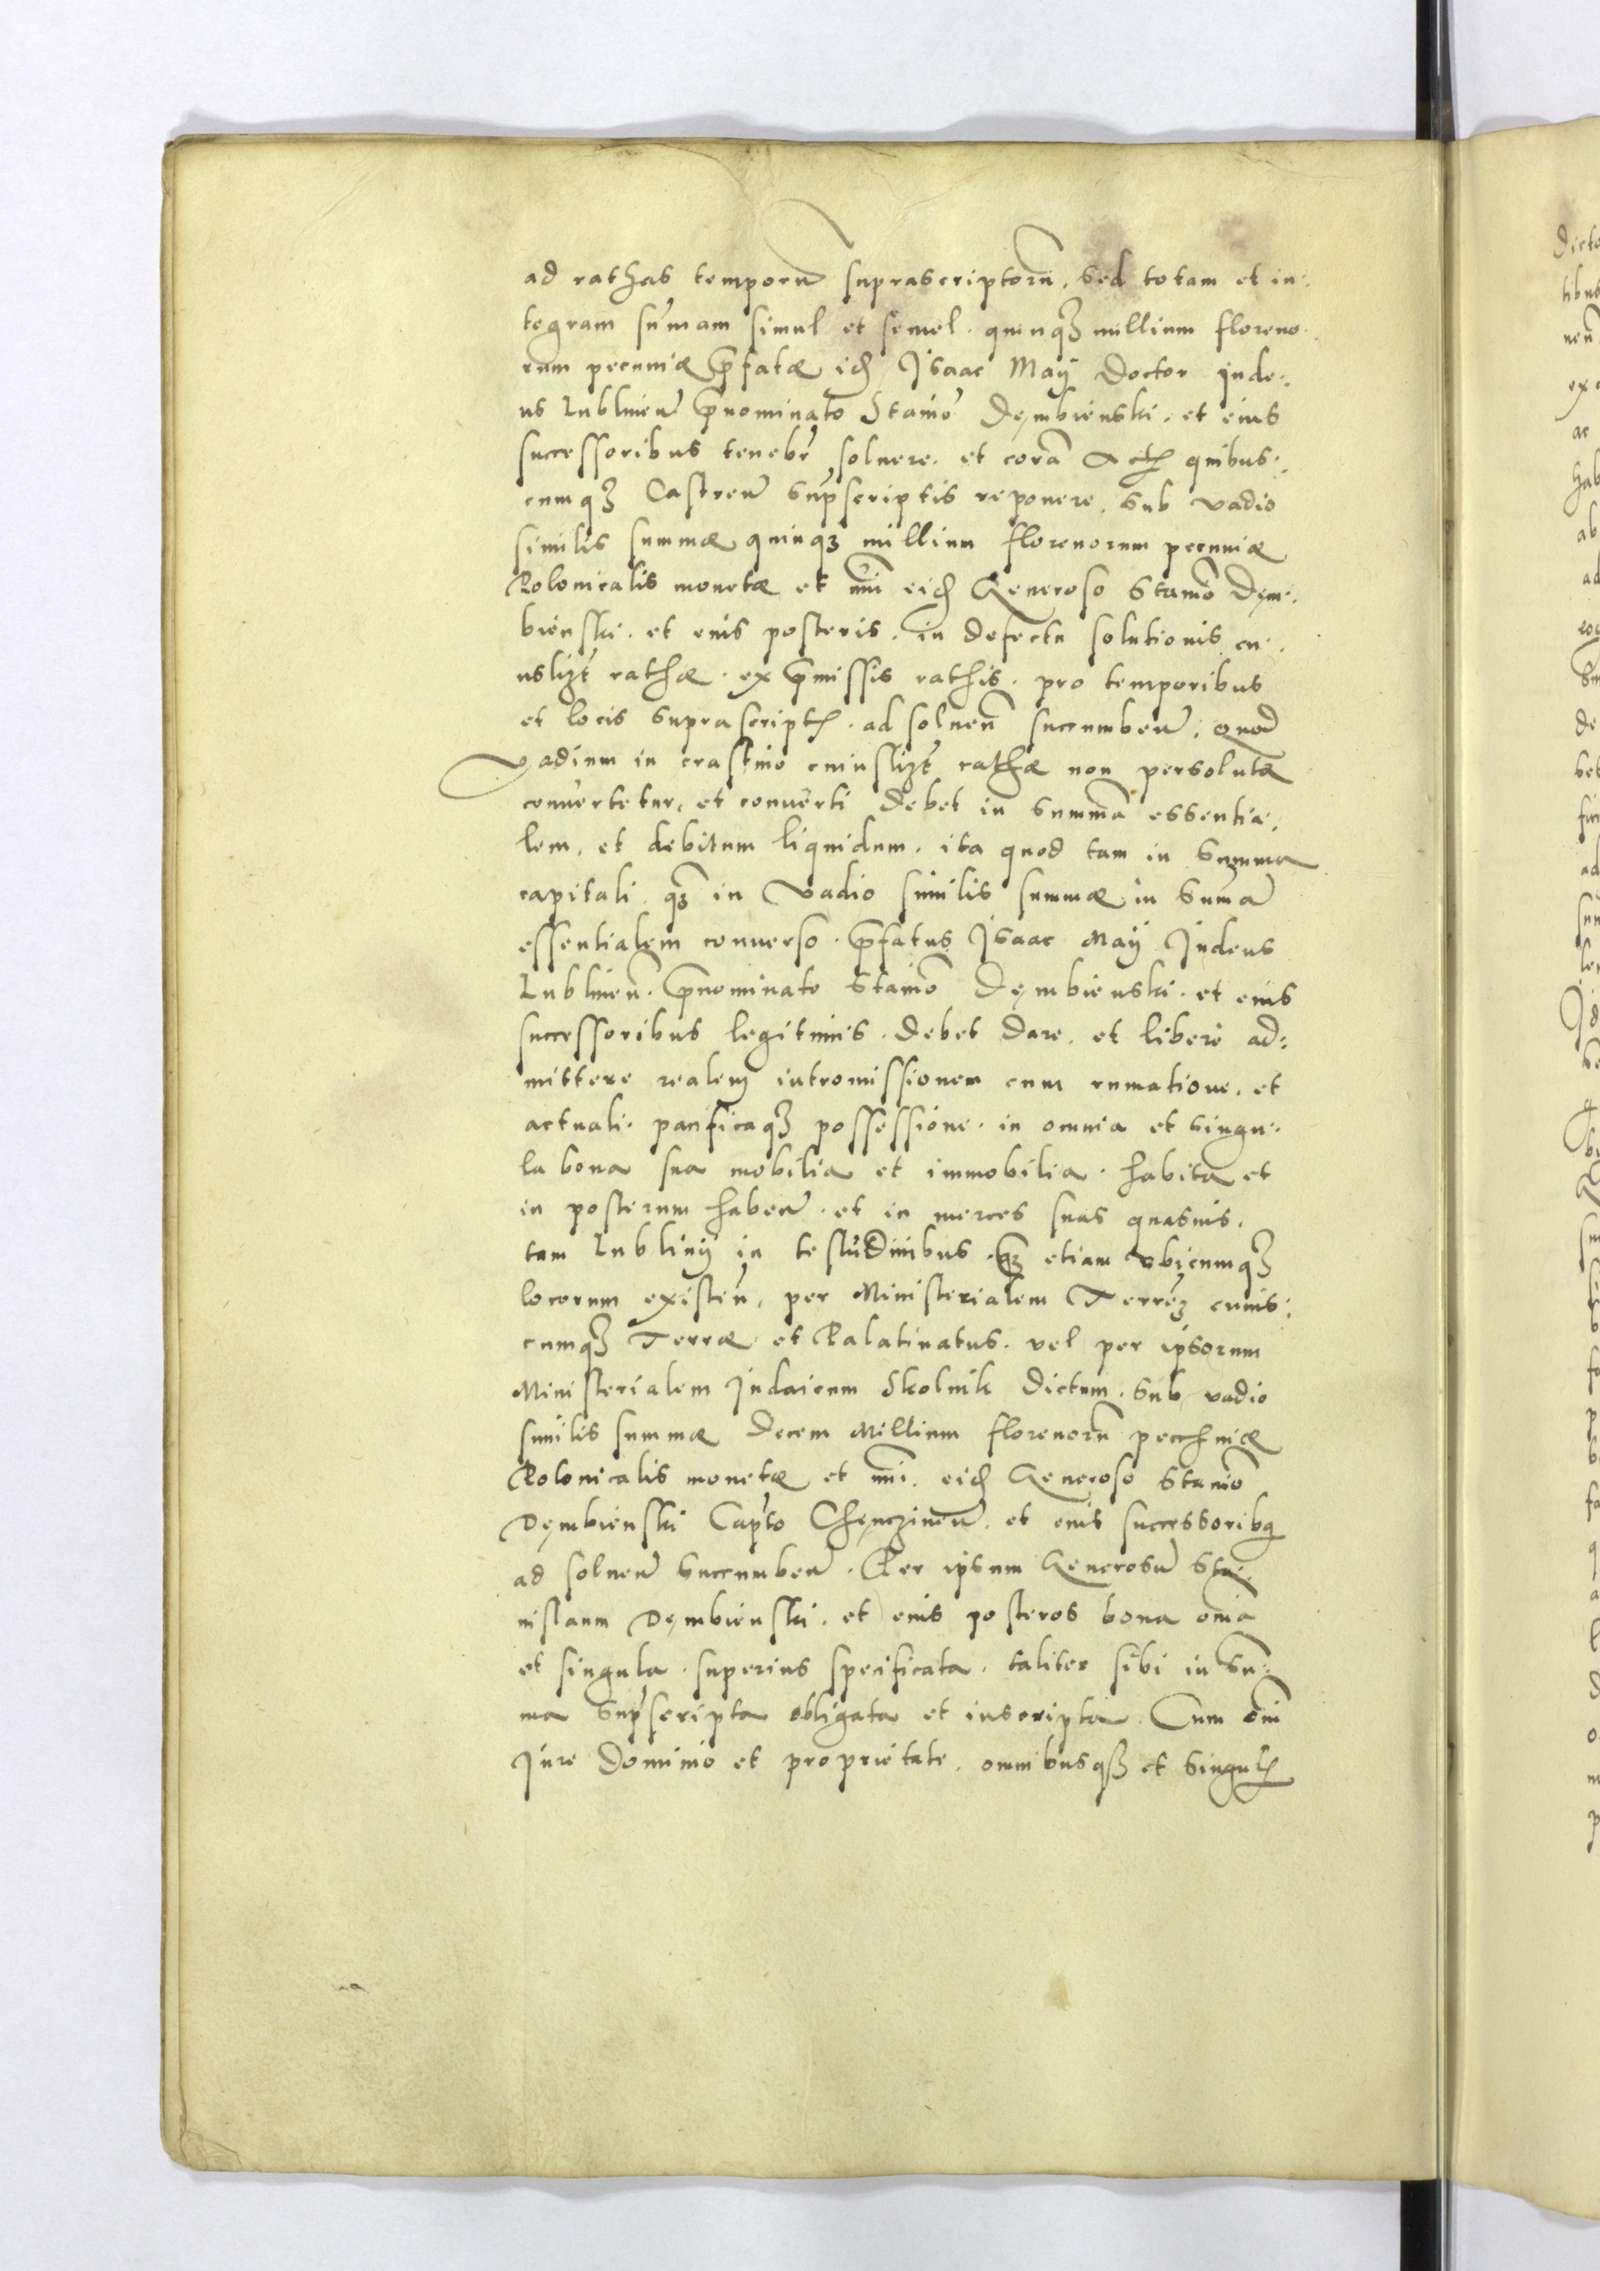 ad rathas temporū suprascriptorū, sed totam et in:
tegram sūmam simul et semel. quinqȝ millium floreno:
rum pecuniæ p̄fatæ idē Isaac Maÿ Doctor Jude:
us Lublinēn p̄nominato Stanīo Dęmbienski. et eius
successoribus tenebr̄ soluere. et corā Actis quibus:
cumqȝ Castreñ sup̄scriptis reponere, sub vadio
similis summæ quinqȝ millium florenorum pecuniæ
Polonicalis monetæ et nūi eidē Generoso Stanīo Dęm:
bienski. et eius posteris. in defectu solutionis cu:
uslibȝt rathæ. ex p̄missis rathis. pro temporibus
et locis suprascriptis. ad soluenđ succumbeñ. quod
vadium in crastino cuiuslibȝt rathæ non persolutæ
conuertetur, et conuerti debet in summā essentia:
lem, et debitum liquidum. ita quod tam in summa
capitali. qȝ in vadio similis summæ in summā
essentialem conuerso. p̄fatus Isaac Maÿ Judeus
Lublineñ. p̄nominato Stanīo Dęmbienski. et eius
successoribus legitimis. debet dare. et libere ad:
mittere realem intromissionem cum rumatione. et
actuali. pacificaqȝ possessione. in omnia et singu:
la bona sua mobilia et immobilia. habita et
in posterum habenđ. et in merces suas quasuis.
tam Lublinÿ in testudinibus. qȝ etiam vbicumqȝ
locorum existeñ, per Ministerialem Terrēȝ cuius:
cumqȝ Terræ et Palatinatus. vel per ipsorum
Ministerialem Judaicum Skolnik dictum. sub vadio
similis summæ decem Millium florenorū pecchuniæ
Polonicalis monetæ et nūi. eidē Generoso Stanīo
Dęmbienski Capto Chęnczineñ. et eius successoribq
ad soluenđ succumbeñ. Per ipsum Generosū Sta:
nislaum Dęmbienski. et eius posteros bona omīa
et singula. superius specificata. taliter sibi in Su:
ma sup̄scripta obligata et inscripta. Cum omī
Jure dominio et proprietate. omnibusqȝ et singulis